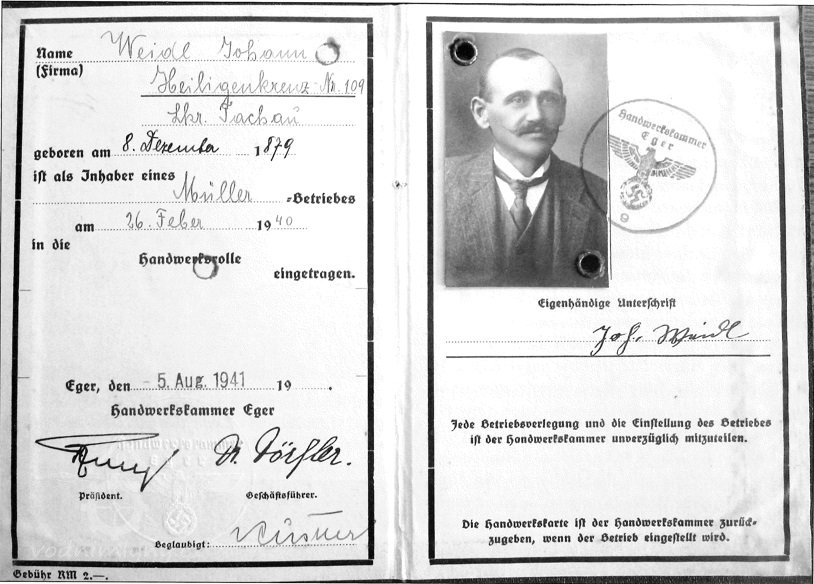 Name Weidl Johann
(Firma) Heiligenkreuz Nr. 109
Lkr. Tachau
geboren am 8. Dezember 1879
ist als Inhaber eines
Müller -Betriebes
am 26. Feber 1940
in die
Handwerksrolle
eingetragen.
Eger, den - 5. Aug. 1941 19 .
Handwerkskammer Eger
Dr. Dörfler.
Präsident. Geschäftsführer.
Beglaubigt:
Gebühr RM 2.—.
Handwerkskammer
Eger
9
Eigenhändige Unterschrift
Joh. Weidl
Jede Betriebsverlegung und die Einstellung des Betriebes
ist der Handwerkskammer unverzüglich mitzuteilen.
Die Handwerkskarte ist der Handwerkskammer zurück-
zugeben, wenn der Betrieb eingestellt wird.